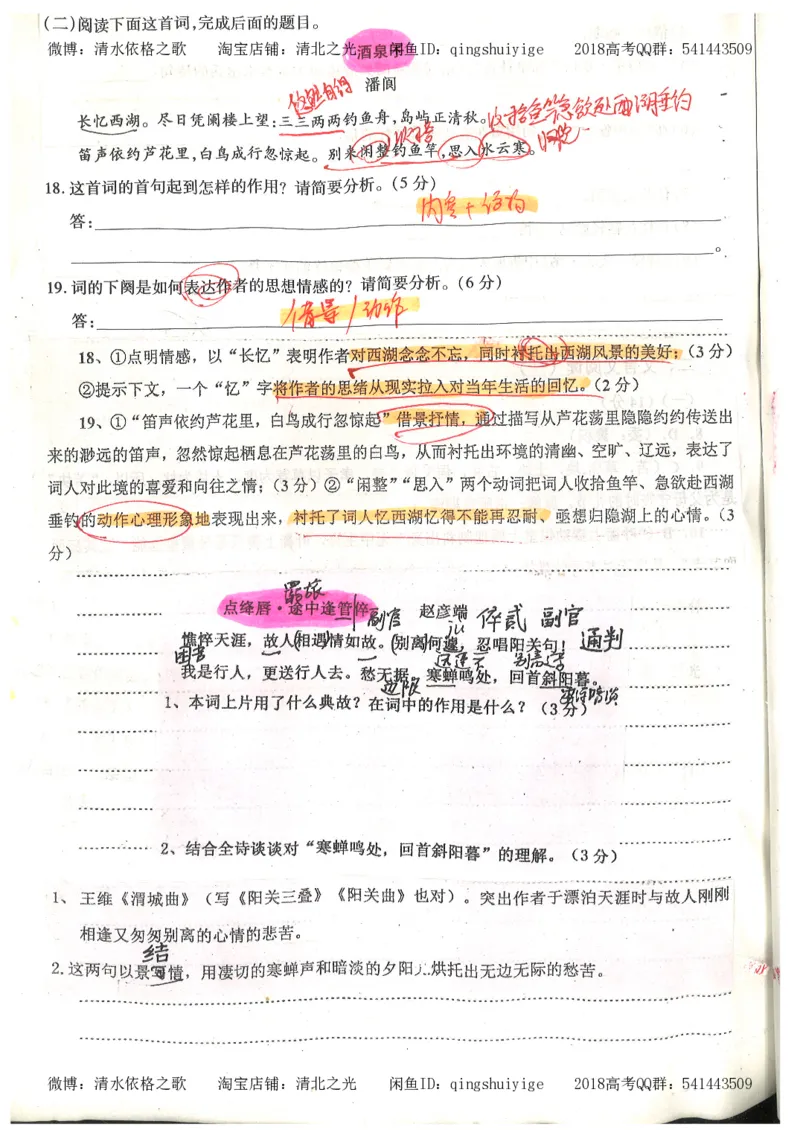 (二)阅读下面这首词,完成后面的题目。
微博：清水依格之歌 淘宝店铺：清北之光 闲鱼ID：qingshuiyige 2018高考QQ群：541443509
酒泉子
潘阆
悠然自得
长忆西湖。尽日凭阑楼上望:三三两两钓鱼舟,岛屿正清秋。
收拾鱼竿急欲赴西湖垂钓
收拾
笛声依约芦花里,白鸟成行忽惊起。别来闲整钓鱼竿,思入水云寒。
18.这首词的首句起到怎样的作用？请简要分析。(5分)
内容+结构
答:
。
19.词的下阕是如何表达作者的思想情感的？请简要分析。(6分)
借景/动作
答:
18、①点明情感，以“长忆”表明作者对西湖念念不忘，同时衬托出西湖风景的美好；(3分)
②提示下文，一个“忆”字将作者的思绪从现实拉入对当年生活的回忆。(2分)
19、①“笛声依约芦花里，白鸟成行忽惊起”借景抒情，通过描写从芦花荡里隐隐约约传送出
来的渺远的笛声，忽然惊起栖息在芦花荡里的白鸟，从而衬托出环境的清幽、空旷、辽远，表达了
词人对此境的喜爱和向往之情；(3分)②“闲整”“思入”两个动词把词人收拾鱼竿、急欲赴西湖
垂钓的动作心理形象地表现出来，衬托了词人忆西湖忆得不能再忍耐、亟想归隐湖上的心情。(3
分)
羁旅
点绛唇·途中逢管倅
副官 赵彦端 倅贰 副官
jù
憔悴天涯，故人相遇情如故。别离何遽，忍唱阳关句！ 通判
我是行人，更送行人去。愁无据。寒蝉鸣处，回首斜阳暮。
边际
1、本词上片用了什么典故？在词中的作用是什么？（3分）
2、结合全诗谈谈对“寒蝉鸣处，回首斜阳暮”的理解。（3分）
1、王维《渭城曲》（写《阳关三叠》《阳关曲》也对）。突出作者于漂泊天涯时与故人刚刚
相逢又匆匆别离的心情的悲苦。
结
2.这两句以景写情，用凄切的寒蝉声和暗淡的夕阳，烘托出无边无际的愁苦。
微博：清水依格之歌 淘宝店铺：清北之光 闲鱼ID：qingshuiyige 2018高考QQ群：541443509